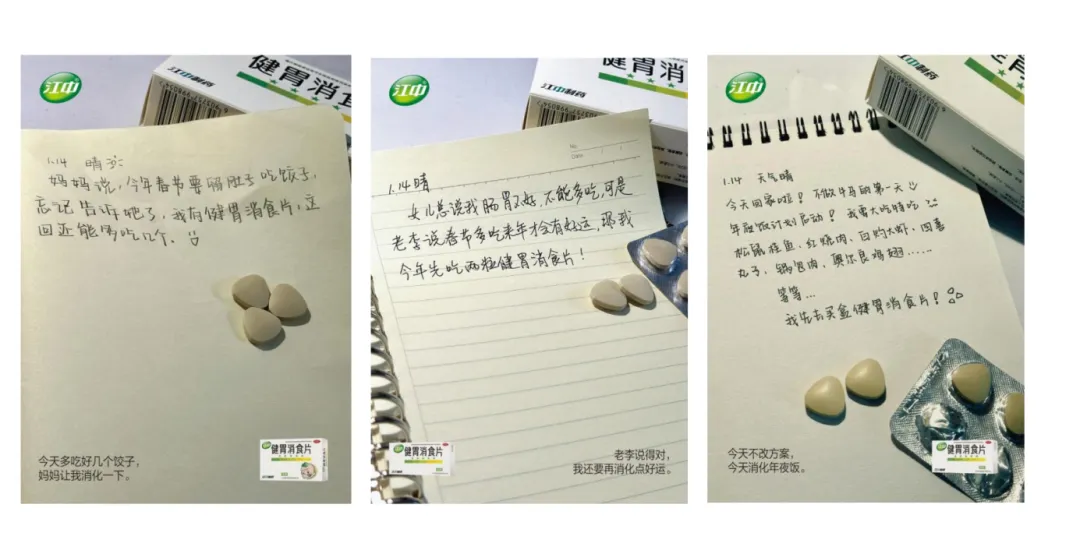 江中
江中制药
健胃消食
1.14 晴
妈妈说，今年春节要留肚子吃饺子，
忘记告诉她了，我有健胃消食片，这
回还能多吃几个。
今天多吃好几个饺子，
妈妈让我消化一下。
江中
健胃消食片
江中
江中制药
健胃消
No.
Date
1.14 晴
女儿总说我肠胃不好，不能多吃，可是
老李说春节多吃来年才会有好运，那我
今年先吃两粒健胃消食片！
江中
健胃消食片
老李说得对，
我还要再消化点好运。
江中
江中制药
1.14 天气晴
今天回家啦！不做牛马的第一天
年夜饭计划启动！我要大吃特吃
松鼠桂鱼、红烧肉、白灼大虾、四喜
丸子、锅包肉、奥尔良鸡翅……
等等…
我先去买盒健胃消食片！
今天不改方案，
今天消化年夜饭。
江中
健胃消食片